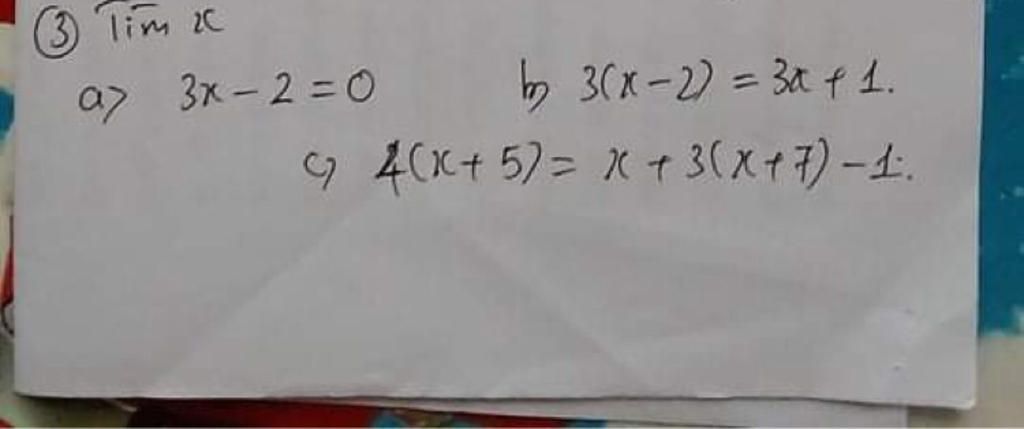 ③ Tìm x
a) 3x - 2 = 0 b) 3(x - 2) = 3x + 1.
c) 4(x + 5) = x + 3(x + 7) - 1.